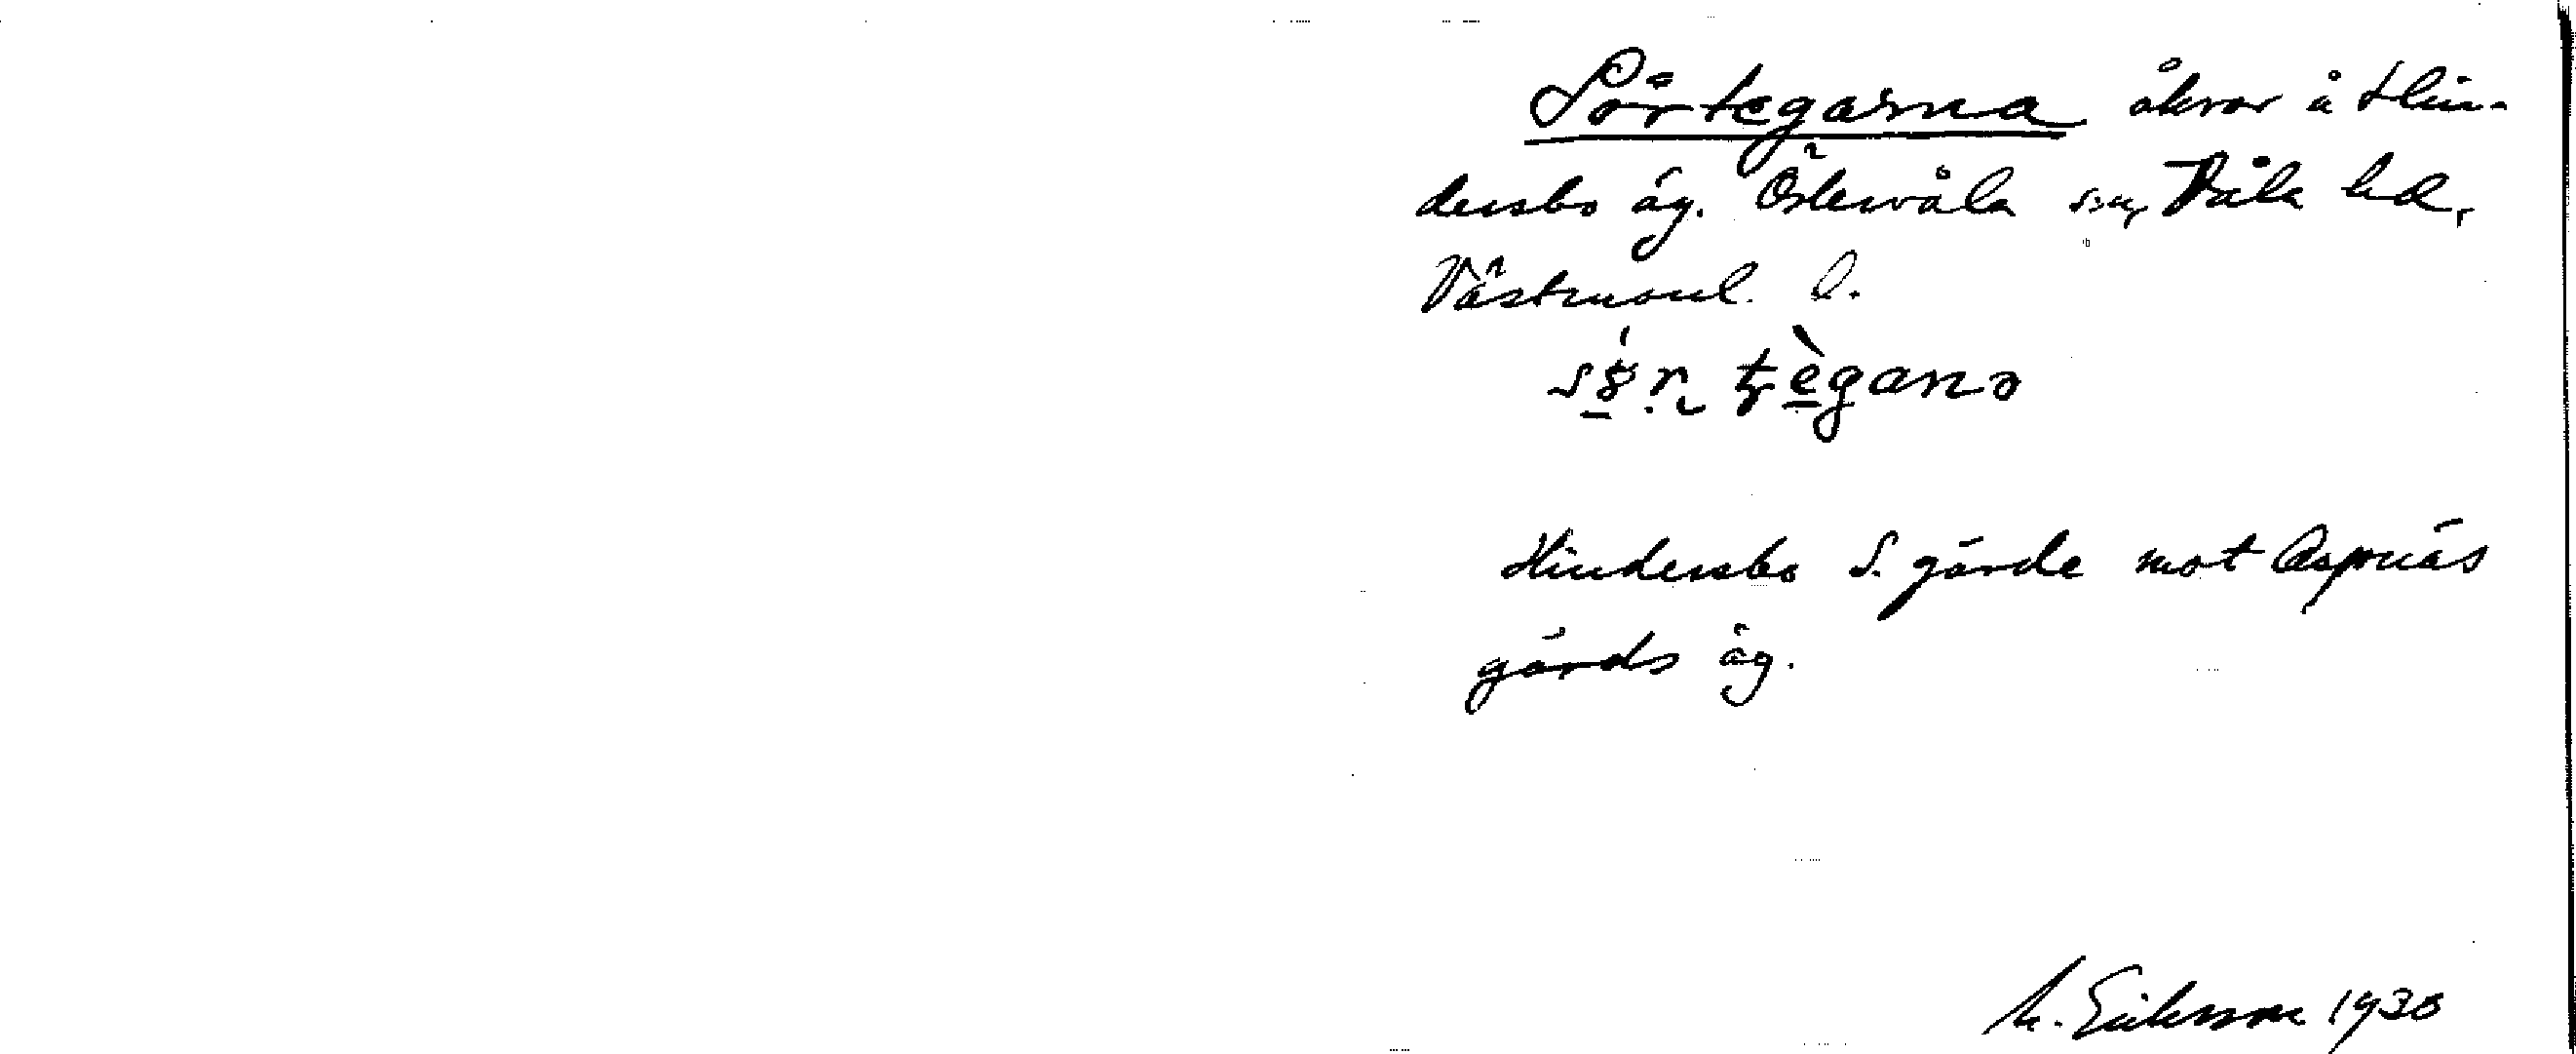 Sörtegarna åkrar å Hin-
dersbo äg. Östervåla sn, Våla hd,
Västmanl. l.
Hindersbo S. gärde mot Aspnäs
gårds äg.
M. Eriksson 1930